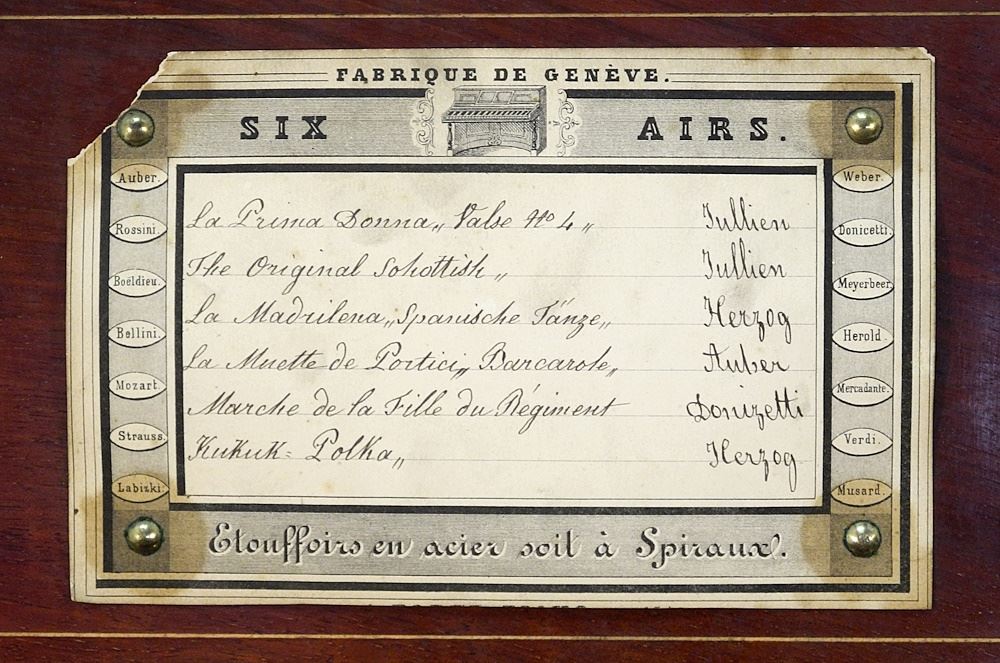 FABRIQUE DE GENÈVE.
SIX AIRS.
Auber.
Rossini.
Boëldieu.
Bellini.
Mozart.
Strauss.
Labizki.
La Prima Donna,, Valse No 4 ,, Jullien
The Original Schottish ,, Jullien
La Madrilena,, Spanische Tänze,, Herzog
La Muette de Portici,, Barcarole,, Auber
Marche de la Fille du Régiment Donizetti
Kukuk= Polka,, Herzog
Weber.
Donicetti.
Meyerbeer.
Herold.
Mercadante.
Verdi.
Musard.
Etouffoirs en acier soit à Spiraux.